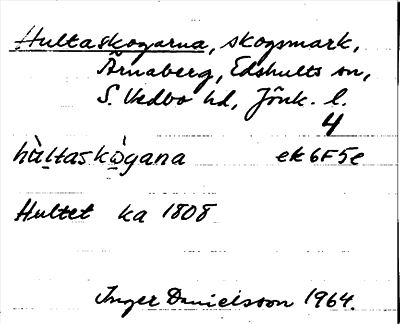 Hultaskogarna, skogsmark,
Ärnaberg, Edshults sn,
S. Vedbo hd, Jönk. l.
4
hùltaskògana ek 6F5e
Hultet ka 1808
Inger Danielsson 1964.